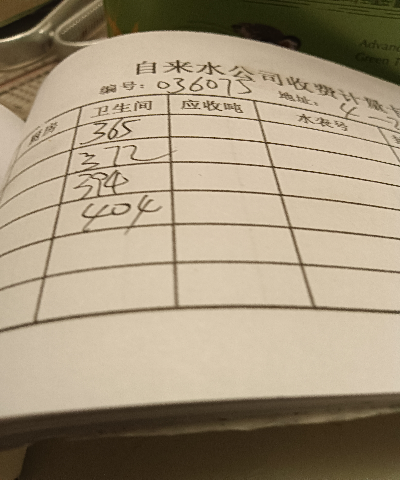 Advanc
Green T
自来水公司收费计量卡
编号: 036073 地址: 4-
厨房 卫生间 应收吨 水表号
365
372
394
404